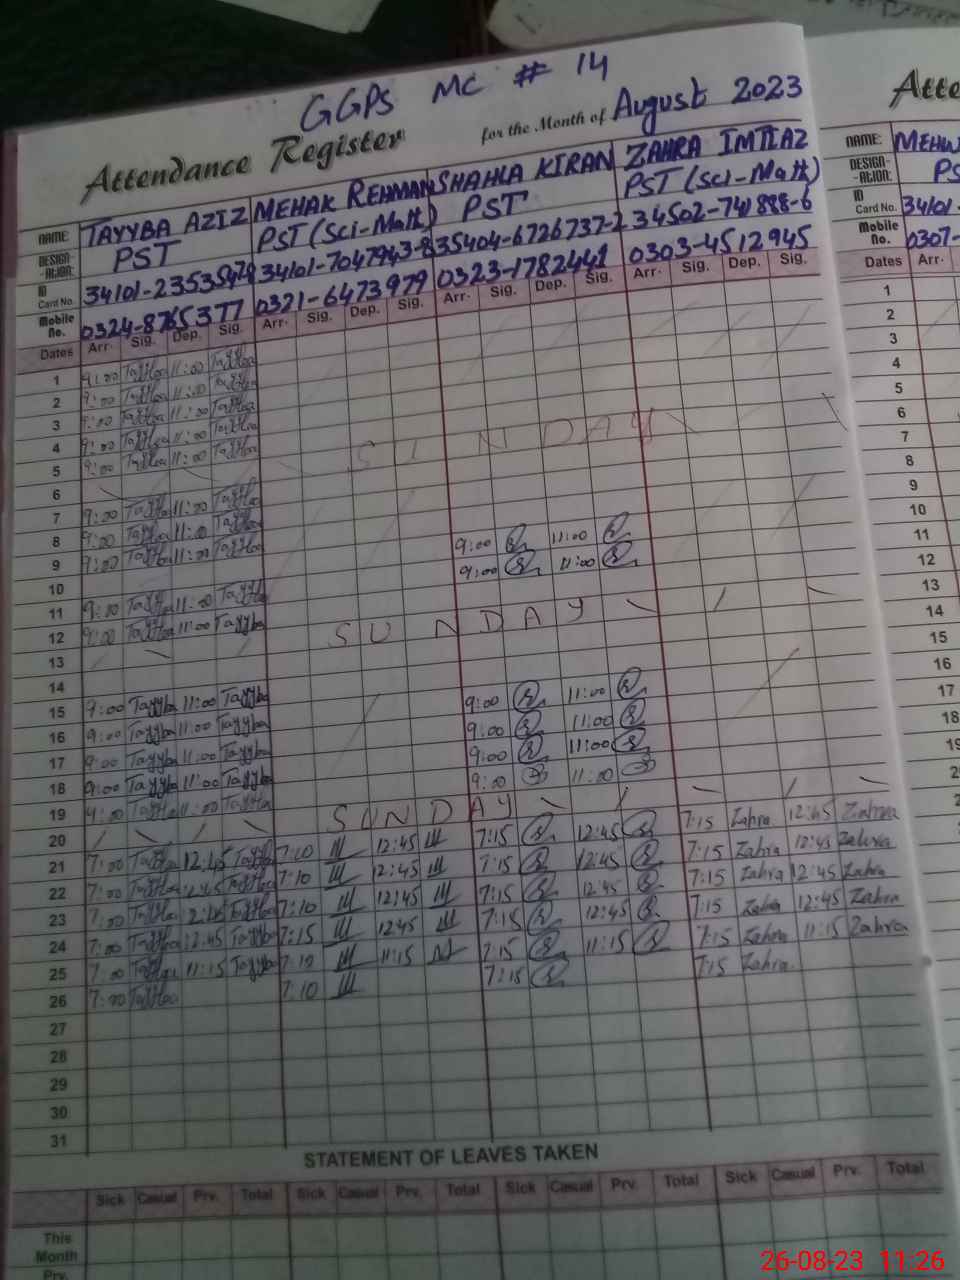 GGPS MC # 14
Attendance Register for the Month of August 2023
NAME: TAYYBA AZIZ MEHAK REHMAN SHAHLA KIRAN ZAHRA IMTIAZ
DESIGN--ATION: PST PST (Sci-Math) PST PST (Sci-Math)
ID Card No. 34101-2353547-8 34101-7047943-8 35404-6726737-2 34502-741888-6
Mobile No. 0324-8765377 0321-6473979 0323-1782441 0303-4512945
Dates Arr. Sig. Dep. Sig. Arr. Sig. Dep. Sig. Arr. Sig. Dep. Sig. Arr. Sig. Dep. Sig.
1 9:00 Tayyba 11:00 Tayyba
2 9:00 Tayyba 11:00 Tayyba
3 9:00 Tayyba 11:00 Tayyba
4 9:00 Tayyba 11:00 Tayyba
5 9:00 Tayyba 11:00 Tayyba
6 SUNDAY
7 9:00 Tayyba 11:00 Tayyba
8 9:00 Tayyba 11:00 Tayyba
9 9:00 Tayyba 11:00 Tayyba
10 9:00 11:00
11 9:00 Tayyba 11:00 Tayyba 9:00 11:00
12 9:00 Tayyba 11:00 Tayyba
13 SUNDAY
14
15 9:00 Tayyba 11:00 Tayyba
16 9:00 Tayyba 11:00 Tayyba 9:00 11:00
17 9:00 Tayyba 11:00 Tayyba 9:00 11:00
18 9:00 Tayyba 11:00 Tayyba 9:00 11:00
19 9:00 Tayyba 11:00 Tayyba 9:00 11:00
20 SUNDAY
21 7:00 Tayyba 12:45 Tayyba 7:10 12:45 7:15 12:45 7:15 Zahra 12:45 Zahra
22 7:00 Tayyba 12:45 Tayyba 7:10 12:45 7:15 12:45 7:15 Zahra 12:45 Zahra
23 7:00 Tayyba 12:45 Tayyba 7:10 12:45 7:15 12:45 7:15 Zahra 12:45 Zahra
24 7:00 Tayyba 12:45 Tayyba 7:15 12:45 7:15 12:45 7:15 Zahra 12:45 Zahra
25 7:00 Tayyba 11:15 Tayyba 7:10 11:15 7:15 11:15 7:15 Zahra 11:15 Zahra
26 7:00 Tayyba 7:10 7:15 7:15 Zahra
27
28
29
30
31
STATEMENT OF LEAVES TAKEN
Sick Casual Prv. Total Sick Casual Prv. Total Sick Casual Prv. Total Sick Casual Prv. Total
This Month
Prv.
Atte
NAME:
DESIGN--ATION: PS
ID Card No. 34101-
Mobile No. 0307-
Dates Arr.
1
2
3
4
5
6
7
8
9
10
11
12
13
14
15
16
17
18
26-08-23 11:26